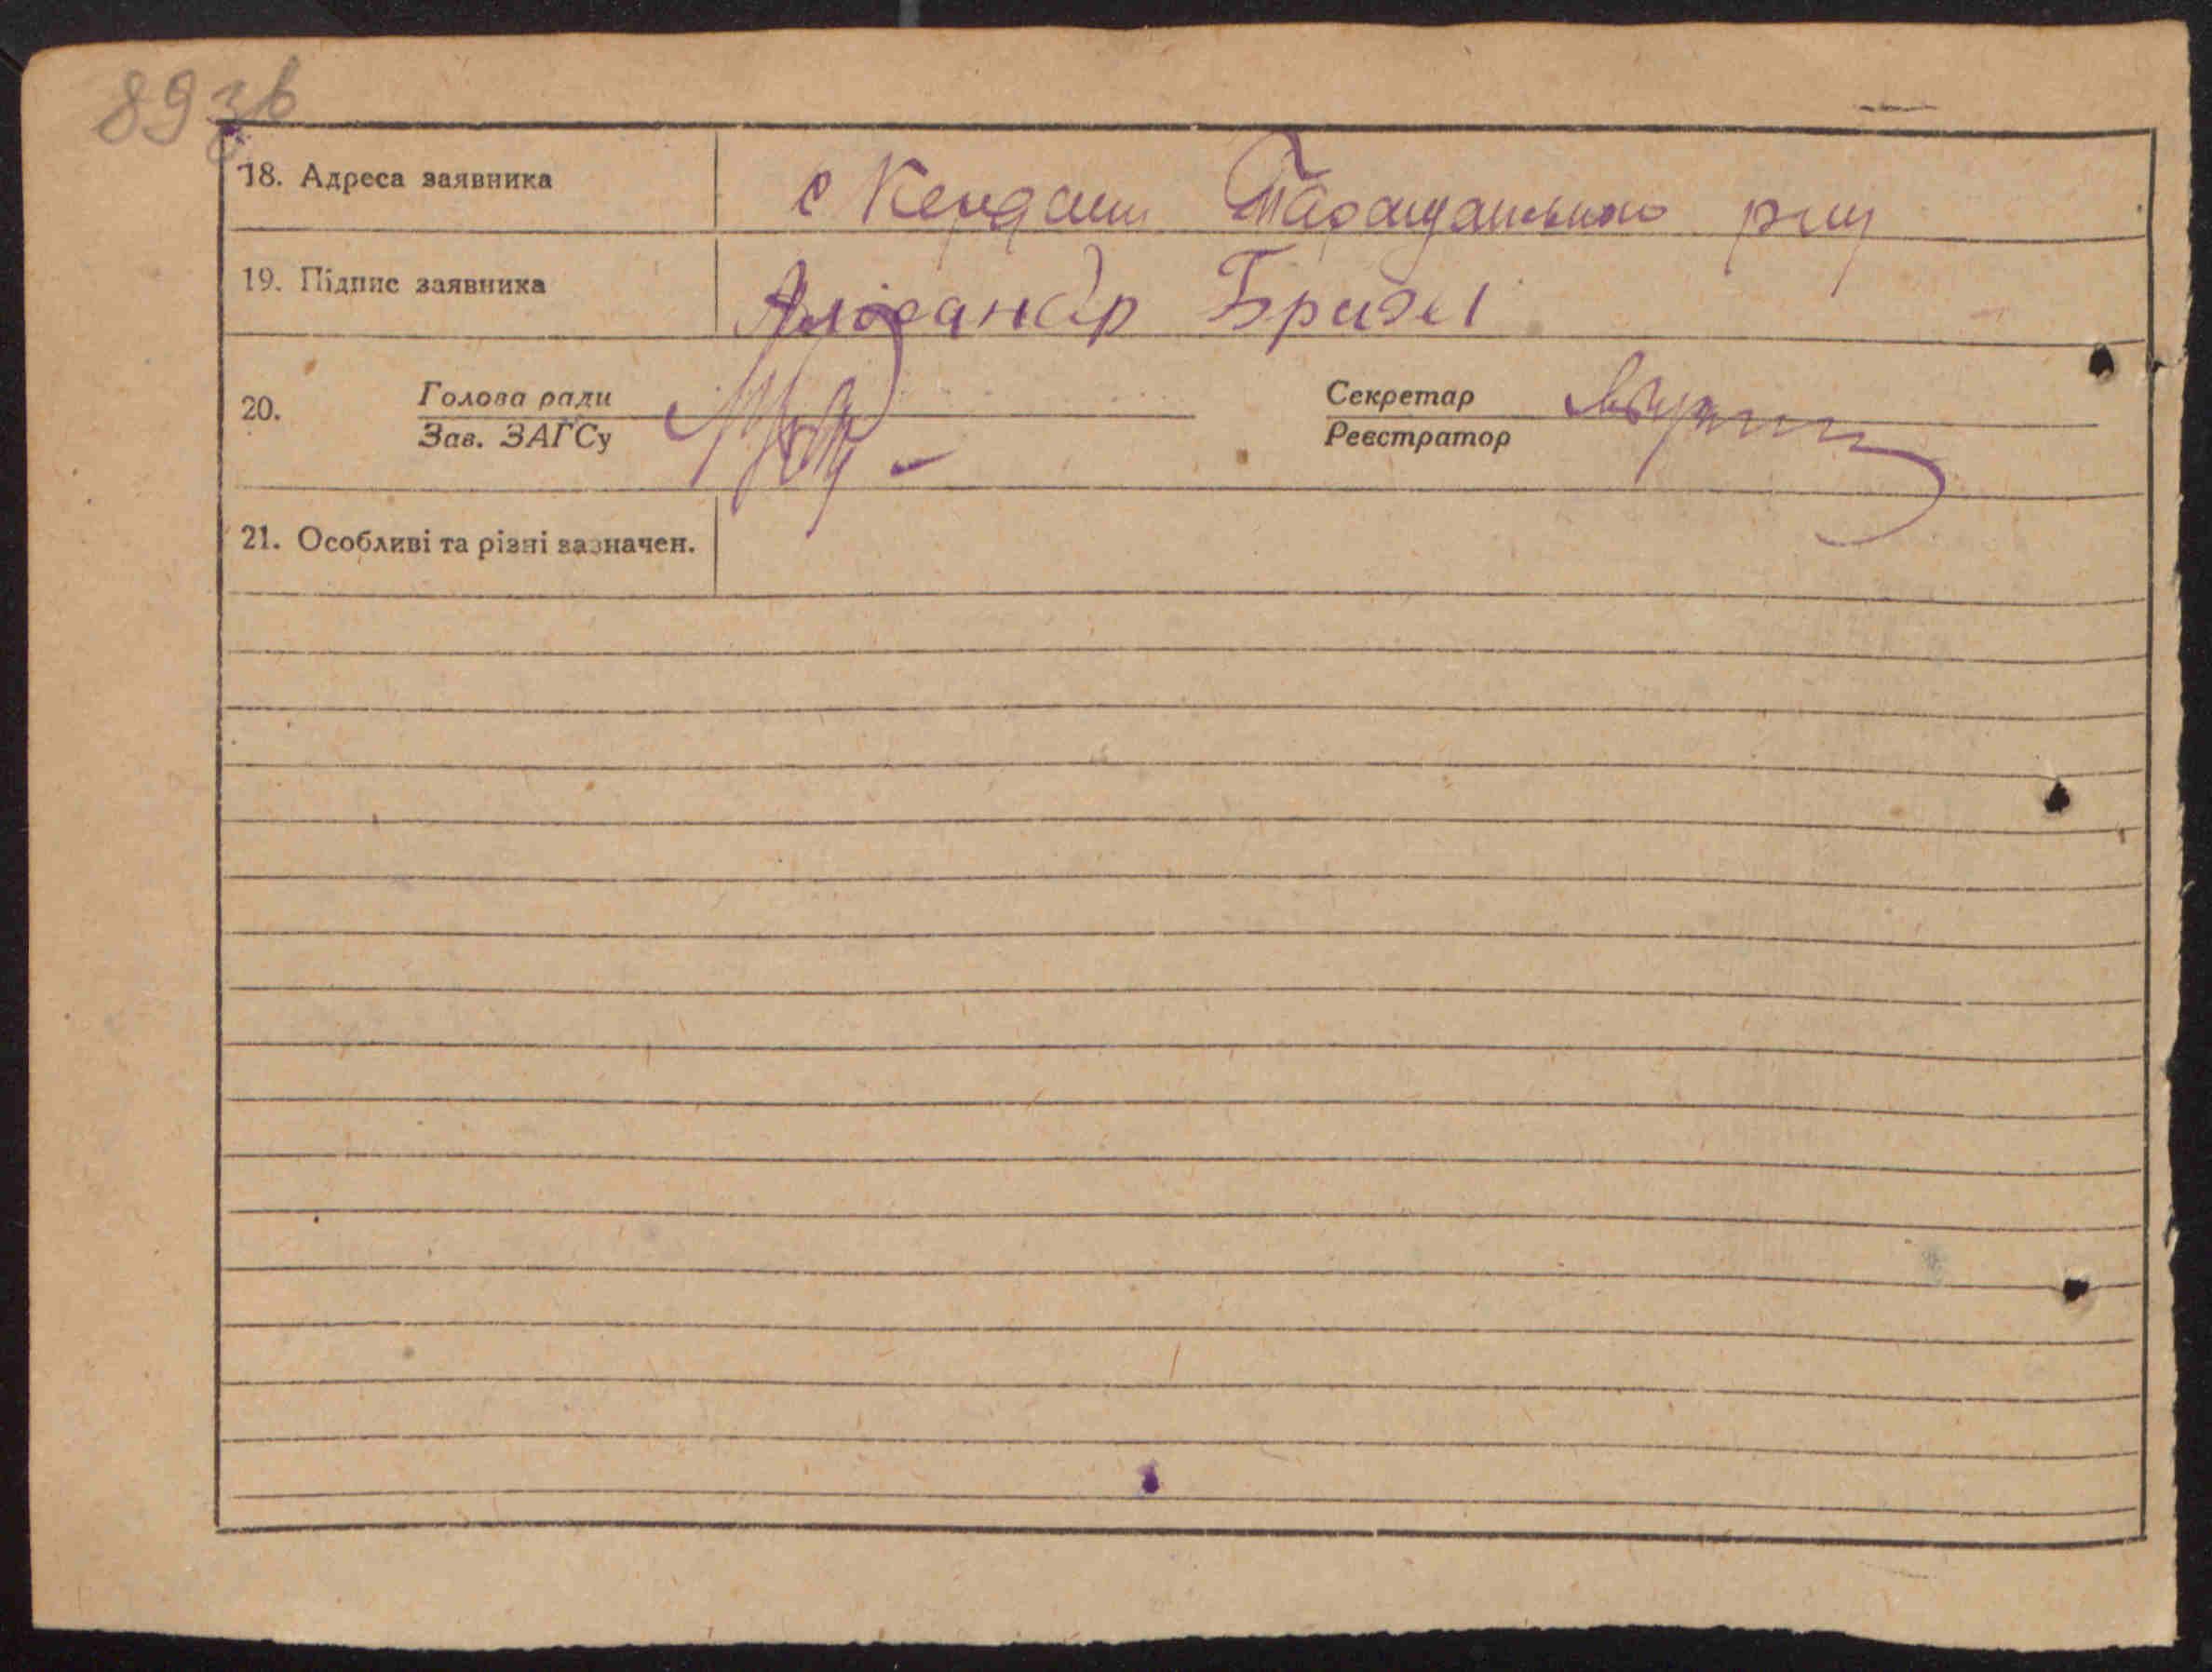 89 зв
18. Адреса заявника с Кердани Таращанського р-ну
19. Підпис заявника Александр
20. Голова ради Секретар
Зав. ЗАГСу Реєстратор
21. Особливі та різні зазначен.